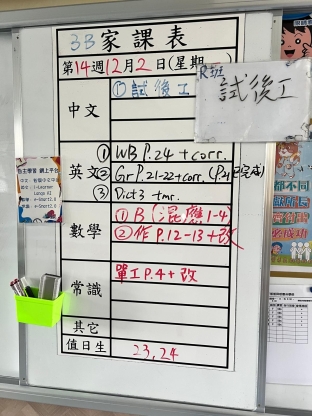 3B家課表
第14週12月2日(星期
R班
試後工
中文
① 試後工
英文
① WB P.24 + corr.
② Gr P.21-22 + corr. (P.21已完成)
③ Dict 3 tmr.
數學
① B (混應1-4)
② 作 P.12-13 + 改
常識
單工 P.4 + 改
其它
值日生
23, 24
自主學習 網上平台
都不同